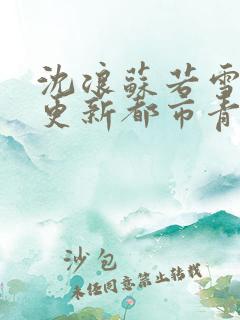 沈浪蘇若雪
更新都市青
沙包
未经同意禁止转载